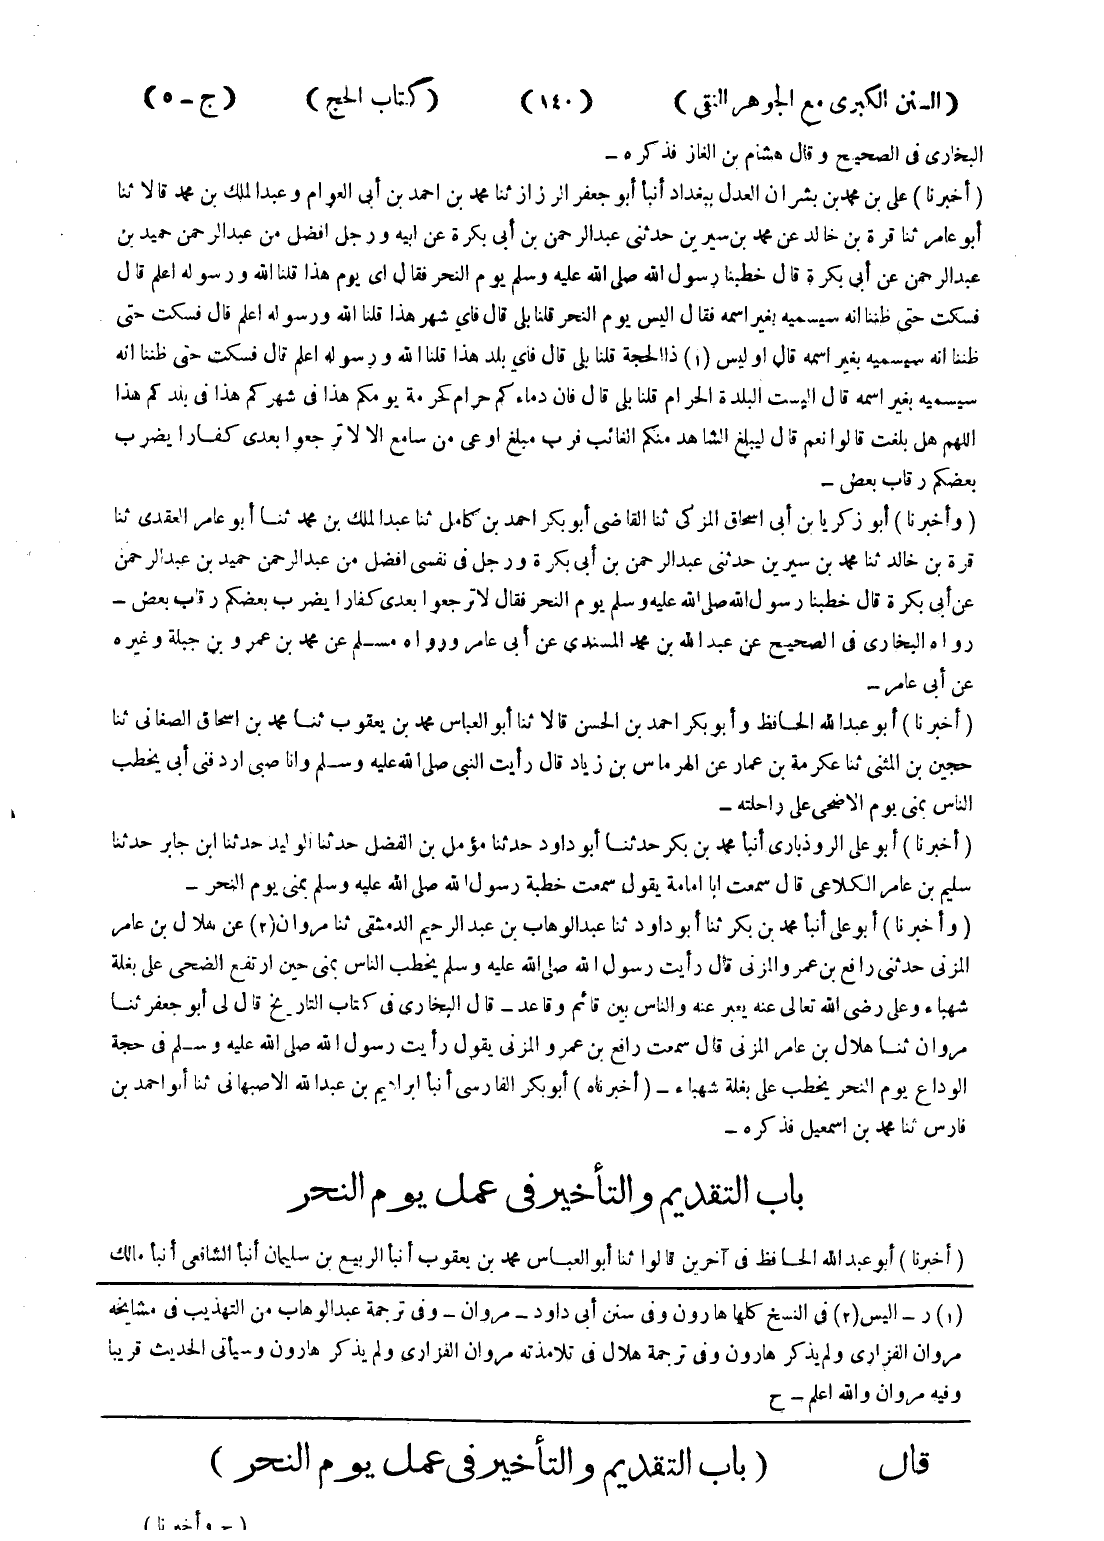 (السنن الكبرى مع الجوهر النقى) (١٤٠) (كتاب الحج) (ج - ٥)
البخارى فى الصحيح وقال هشام بن الغاز فذكره -
(أخبرنا) على بن محمد بن بشران العدل ببغداد أنبأ أبو جعفر الرزاز ثنا محمد بن احمد بن أبى العوام وعبدالملك بن محمد قالا ثنا
أبو عامر ثنا قرة بن خالد عن محمد بن سيرين حدثنى عبدالرحمن بن أبى بكرة عن ابيه ورجل افضل من عبدالرحمن حميد بن
عبدالرحمن عن أبى بكرة قال خطبنا رسول الله صلى الله عليه وسلم يوم النحر فقال اى يوم هذا قلنا الله ورسوله اعلم قال
فسكت حتى ظننا انه سيسميه بغير اسمه فقال اليس يوم النحر قلنا بلى قال فاي شهر هذا قلنا الله ورسوله اعلم قال فسكت حتى
ظننا انه سيسميه بغير اسمه قال اوليس (١) ذا الحجة قلنا بلى قال فاي بلد هذا قلنا الله ورسوله اعلم قال فسكت حتى ظننا انه
سيسميه بغير اسمه قال اليست البلدة الحرام قلنا بلى قال فان دماءكم حرام كحرمة يومكم هذا فى شهركم هذا فى بلدكم هذا
اللهم هل بلغت قالوا نعم قال ليبلغ الشاهد منكم الغائب فرب مبلغ اوعى من سامع الا لا ترجعوا بعدى كفارا يضرب
بعضكم رقاب بعض -
(وأخبرنا) أبو زكريا بن أبى اسحاق المزكى ثنا القاضى أبو بكر احمد بن كامل ثنا عبدالملك بن محمد ثنا أبو عامر العقدى ثنا
قرة بن خالد ثنا محمد بن سيرين حدثنى عبدالرحمن بن أبى بكرة ورجل فى نفسى افضل من عبدالرحمن حميد بن عبدالرحمن
عن أبى بكرة قال خطبنا رسول الله صلى الله عليه وسلم يوم النحر فقال لا ترجعوا بعدى كفارا يضرب بعضكم رقاب بعض -
رواه البخارى فى الصحيح عن عبد الله بن محمد المسندي عن أبى عامر ورواه مسلم عن محمد بن عمرو بن جبلة وغيره
عن أبى عامر -
(أخبرنا) أبو عبدالله الحافظ وأبو بكر احمد بن الحسن قالا ثنا أبو العباس محمد بن يعقوب ثنا محمد بن اسحاق الصغانى ثنا
حجين بن المثنى ثنا عكرمة بن عمار عن الهرماس بن زياد قال رأيت النبى صلى الله عليه وسلم وانا صبى اردفنى أبى يخطب
الناس بمنى يوم الاضحى على راحلته -
(أخبرنا) أبو على الروذبارى أنبأ محمد بن بكر حدثنا أبو داود حدثنا مؤمل بن الفضل حدثنا الوليد حدثنا ابن جابر حدثنا
سليم بن عامر الكلاعى قال سمعت ابا امامة يقول سمعت خطبة رسول الله صلى الله عليه وسلم بمنى يوم النحر -
(وأخبرنا) أبو على أنبأ محمد بن بكر ثنا أبو داود ثنا عبدالوهاب بن عبد الرحيم الدمشقى ثنا مروان(٢) عن هلال بن عامر
المزنى حدثنى رافع بن عمرو المزنى قال رأيت رسول الله صلى الله عليه وسلم يخطب الناس بمنى حين ارتفع الضحى على بغلة
شهباء وعلى رضى الله تعالى عنه يعبر عنه والناس بين قائم وقاعد - قال البخارى فى كتاب التاريخ قال لى أبو جعفر ثنا
مروان ثنا هلال بن عامر المزنى قال سمعت رافع بن عمرو المزنى يقول رأيت رسول الله صلى الله عليه وسلم فى حجة
الوداع يوم النحر يخطب على بغلة شهباء - (أخبرناه) أبو بكر الفارسى أنبأ ابراهيم بن عبدالله الاصبهانى ثنا أبو احمد بن
فارس ثنا محمد بن اسمعيل فذكره -
باب التقديم والتأخير فى عمل يوم النحر
(أخبرنا) أبو عبدالله الحافظ فى آخرين قالوا ثنا أبو العباس محمد بن يعقوب أنبأ الربيع بن سليمان أنبأ الشافعى أنبأ مالك
(١) ر - اليس(٢) فى النسخ كلها هارون وفى سنن أبى داود - مروان - وفى ترجمة عبدالوهاب من التهذيب فى مشايخه
مروان الفزارى ولم يذكر هارون وفى ترجمة هلال فى تلامذته مروان الفزارى ولم يذكر هارون وسيأتى الحديث قريبا
وفيه مروان والله اعلم - ح
قال (باب التقديم والتأخير فى عمل يوم النحر)
(ح وأخبرنا)